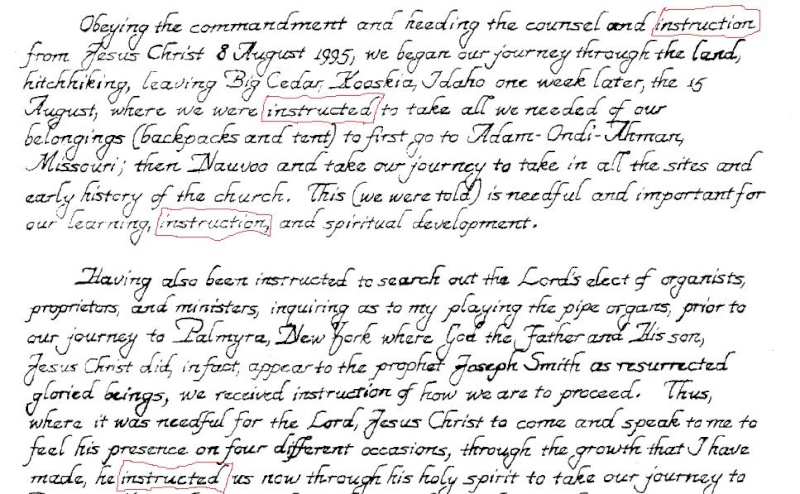 Obeying the commandment and heeding the counsel and instruction
from Jesus Christ 8 August 1995, we began our journey through the land,
hitchhiking, leaving Big Cedar, Kooskia, Idaho one week later, the 15
August, where we were instructed to take all we needed of our
belongings (backpacks and tent) to first go to Adam-Ondi-Ahman,
Missouri; then Nauvoo and take our journey to take in all the sites and
early history of the church. This (we were told) is needful and important for
our learning, instruction, and spiritual development.
Having also been instructed to search out the Lord's elect of organists,
proprietors, and ministers, inquiring as to my playing the pipe organs, prior to
our journey to Palmyra, New York where God the Father and His son,
Jesus Christ did, in fact, appear to the prophet Joseph Smith as resurrected
gloried beings, we received instruction of how we are to proceed. Thus,
where it was needful for the Lord, Jesus Christ to come and speak to me to
feel his presence on four different occasions, through the growth that I have
made, he instructed us now through his holy spirit to take our journey to